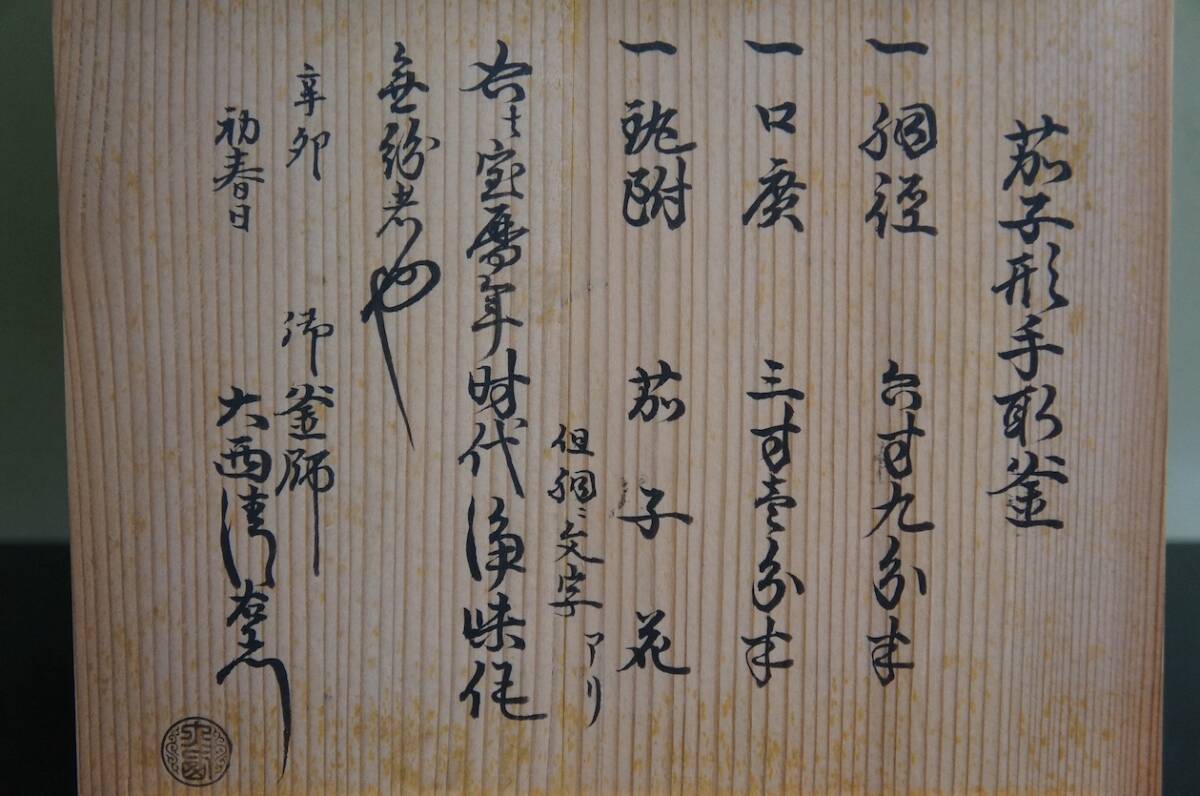 茄子形手取釜
一 胴徑 六寸九分半
一 口廣 三寸壱分半
一 鐶附 茄子花
但胴ニ文字アリ
右者宝暦年時代浄味作
無紛者也
辛卯
初春日
御釜師
大西清右衛門